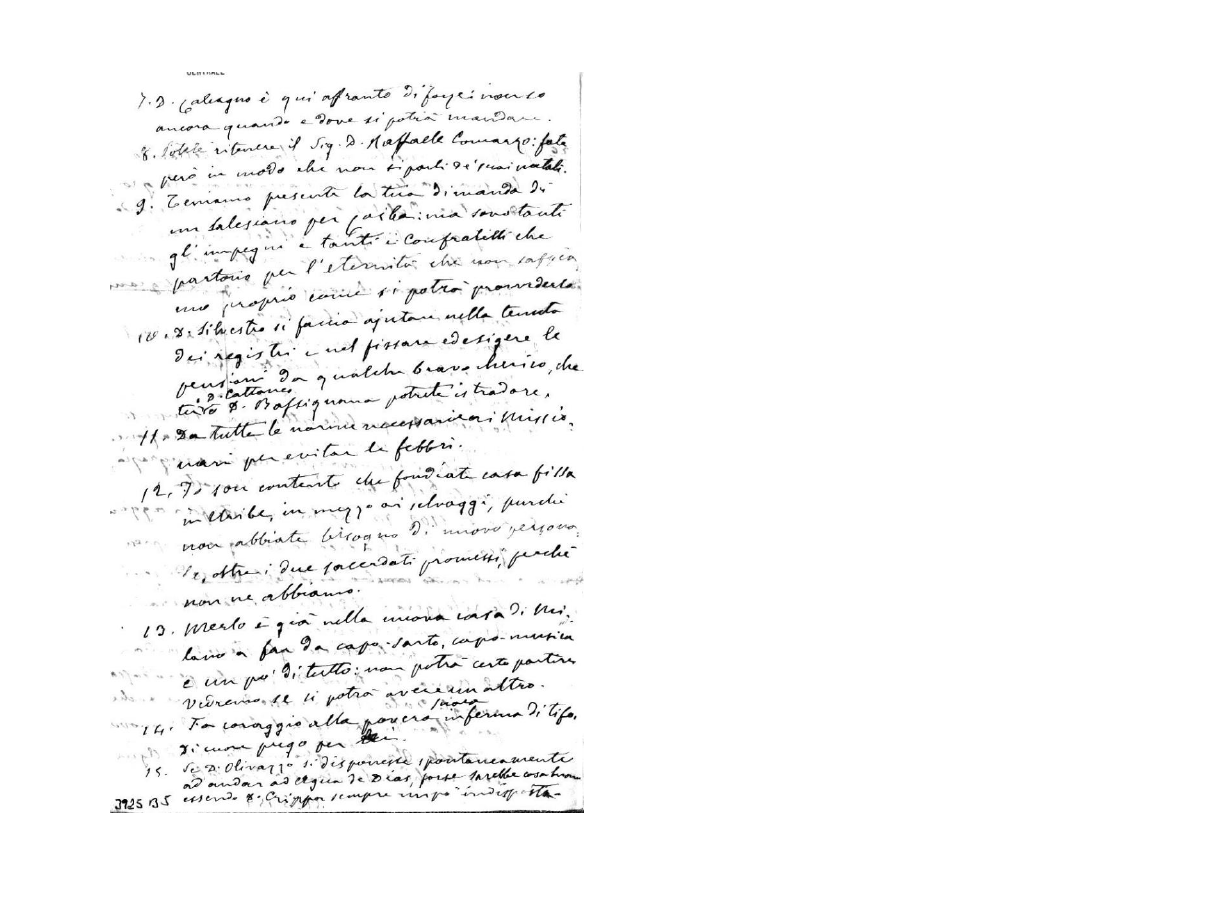 CENTRALE
7. D. Calcagno è qui affranto di forze: non so
ancora quando e dove si potrà mandare.
8. Potete ritenere il Sig. D. Raffaele : fate
però in modo che non si parli de' suoi natali.
9. Teniamo presente la tua dimanda di
un Salesiano per : ma sono tanti
gl' impegni e tanti i Confratelli che
partono per l'eternità che non sappia
mo proprio come si potrà provvederlo.
10. D. Silvestro si faccia ajutare nella tenuta
dei registri e nel fissare ed esigere le
pensioni da qualche bravo cherico, che
e D. Cattaneo
tu o D. Bassignana potrete istradare.
11. Da tutte le norme necessarie ai Missio-
nari per evitar le febbri.
12. Io son contento che fondiate casa fissa
in , in mezzo ai selvaggi, purché
non abbiate bisogno di nuovo persona
le, oltre i due sacerdoti promessi, perché
non ne abbiamo.
13. Merlo è già nella nuova casa di Mi-
lano a far da capo-sarto, capo-musica
e un po' di tutto: non potrà certo partire.
Vedremo se si potrà avere un altro.
suora
14. Fa coraggio alla povera inferma di tifo.
Di cuore prego per lei.
15. Se D. Olivazzo si disponesse spontaneamente
ad andar ad Agua de Dios, forse sarebbe cosa buona
essendo D. Crippa sempre un po' indisposto.
3925 B5